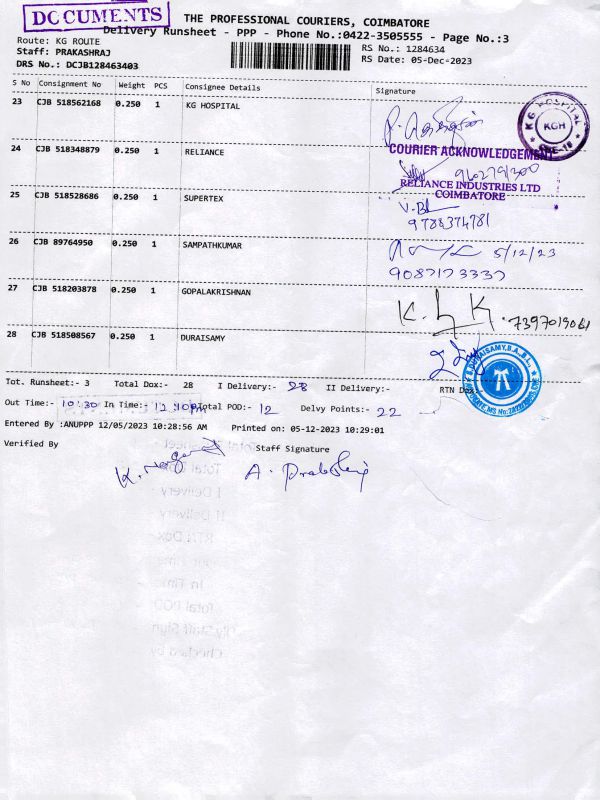 DOCUMENTS
THE PROFESSIONAL COURIERS, COIMBATORE
Delivery Runsheet - PPP - Phone No.:0422-3505555 - Page No.:3
Route: KG ROUTE
RS No.: 1284634
Staff: PRAKASHRAJ
RS Date: 05-Dec-2023
DRS No.: DCJB128463403
S No Consignment No Weight PCS Consignee Details Signature
23 CJB 518562168 0.250 1 KG HOSPITAL
KG HOSPITAL
KGH
CBE-18
24 CJB 518348879 0.250 1 RELIANCE
COURIER ACKNOWLEDGEMENT
RELIANCE INDUSTRIES LTD
COIMBATORE
25 CJB 518528686 0.250 1 SUPERTEX
9788374781
26 CJB 89764950 0.250 1 SAMPATHKUMAR
5/12/23
9087173337
27 CJB 518203878 0.250 1 GOPALAKRISHNAN
28 CJB 518508567 0.250 1 DURAISAMY
DURAISAMY, B.A,B.L,
Tot. Runsheet:- 3 Total Dox:- 28 I Delivery:- 28 II Delivery:- RTN Dox:-
Out Time:- 10:30 In Time:- 12:10PM Total POD:- 12 Delvy Points:- 22
Entered By :ANUPPP 12/05/2023 10:28:56 AM Printed on: 05-12-2023 10:29:01
Verified By Staff Signature